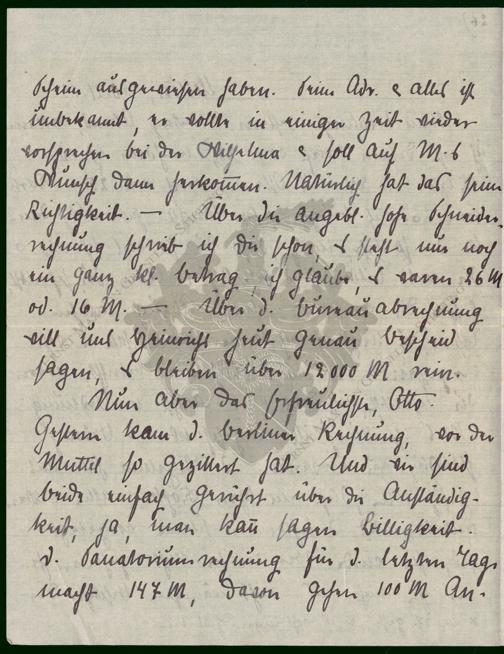 schein ausgewiesen haben. Seine Adr. & alles ist
unbekannt, er wollte in einiger Zeit wieder
vorsprechen bei der Wilhelma & soll auf M.s
Wunsch dann herkom̅en. Natürlich hat das seine
Richtigkeit. — Über die angebl. hohe Schneider-
rechnung schrieb ich dir schon, es steht nur noch
ein ganz kl. Betrag, ich glaube, es waren 26 M
od. 16 M. — Über d. Bureauabrechnung
will uns Heinrichs heut genau Bescheid
sagen, es bleiben über 12000 M rein.
Nun aber das Erfreulichste, Otto.
Gestern kam d. Berliner Rechnung, vor der
Muttel so gezittert hat. Und wir sind
beide einfach gerührt über die Anständig-
keit, ja, man kan̅ sagen Billigkeit.
d. Sanatoriumsrechnung für d. letzten Tage
macht 147 M, davon gehen 100 M An-